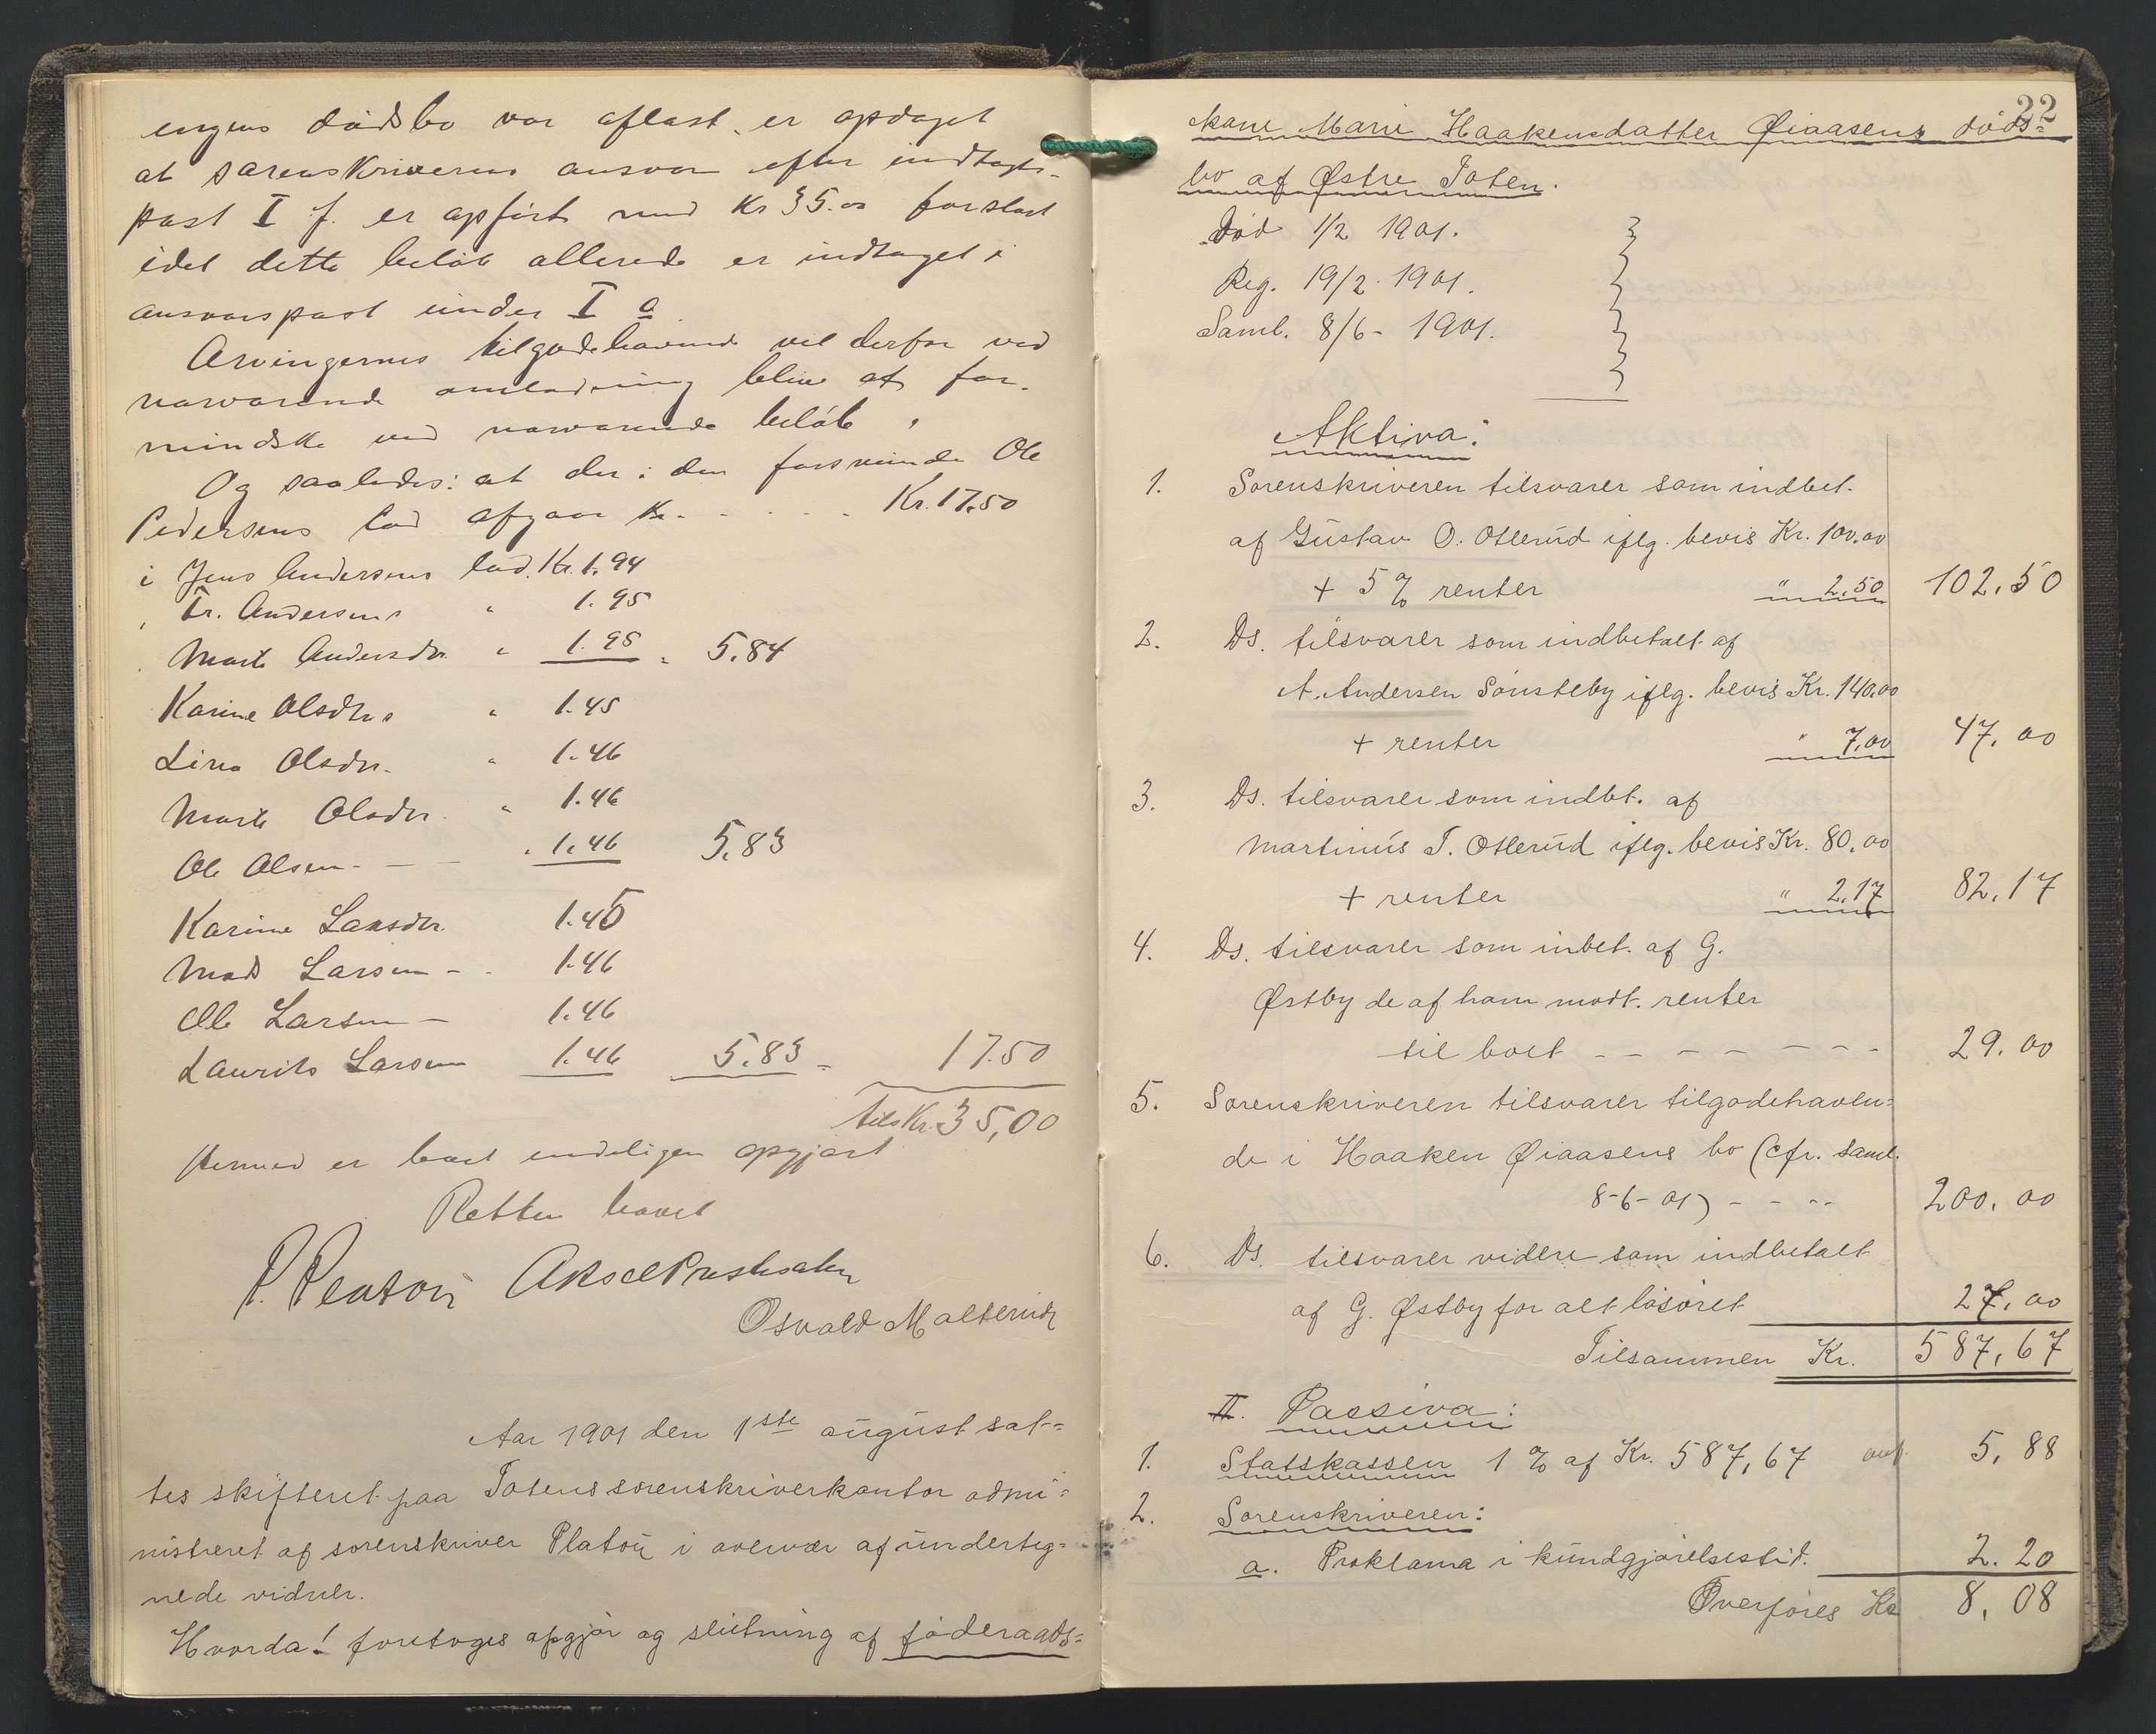 engens dødsbo var aflast, er opdaget
at sorenskriverens ansvar efter indtægts-
post I f. er opført med Kr 35.00 forstort
idet dette beløb allerede er indtaget i
ansvarspost under I a
Arvingernes tilgodehavende vil derfor ved
nærværende omlodning blive at for-
mindske med nærværende beløb,
Og saaledes: at der i den forsvundne Ole
Pedersens lod afgaar Kr. - - - - - Kr. 17.50
i Jens Andersens lod. Kr. 1.94
" Fr. Andersens " 1.95
" Marte Andersdr. " 1.95 = 5.84
Karine Olsdrs " 1.45
Lina Olsdr. " 1.46
Marte Olsdr. " 1.46
Ole Olsen - — — " 1.46 5.83
Karine Larsdr. 1.45
Mads Larsen - - 1.46
Ole Larsen — 1.46
Laurits Larsen 1.46 5.83 = 17.50
tils Kr. 35,00
Hermed er boet endeligen opgjort
Retten hævet
P. Platou Aksel Prestesæter
Osvald Malterud
Aar 1901 den 1ste august sat-=
tes skifteret paa Totens sorenskriverkontor admi=
nistreret af sorenskriver Platou i overvær af underteg=
nede vidner.
Hvorda! foretoges opgjør og slutning af føderaads=
22
kone Marie Haakensdatter Øiaasens døds=
bo af Østre Toten.
Død 1/2 1901.
Reg. 19/2 1901.
Saml. 8/6 - 1901.
Aktiva:
1. Sorenskriveren tilsvarer som indbet.
af Gustav O. Otterud iflg. bevis Kr. 100.00
+ 5 % renter " 2.50 102.50
2. Ds. tilsvarer som indbetalt af
A. Andersen Sønsteby iflg. bevis Kr. 140.00
+ renter " 7,00 47.00
3. Ds. tilsvarer som indbt. af
Martinus T. Otterud iflg. bevis Kr. 80.00
+ renter " 2.17 82,17
4. Ds. tilsvarer som inbet. af G.
Østby de af ham modt. renter
til boet - - - - - - - 29.00
5. Sorenskriveren tilsvarer tilgodehaven=
de i Haaken Øiaasens bo (cfr. saml.
8-6-01) - - - - 200.00
6. Ds. tilsvarer videre som indbetalt
af G. Østby for alt løsøret 27,00
Tilsammen Kr. 587,67
II. Passiva:
1. Statskassen 1 % af Kr. 587,67 5,88
2. Sorenskriveren:
a. Proklama i kundgjørelsestid. 2.20
Overføres Kr 8,08